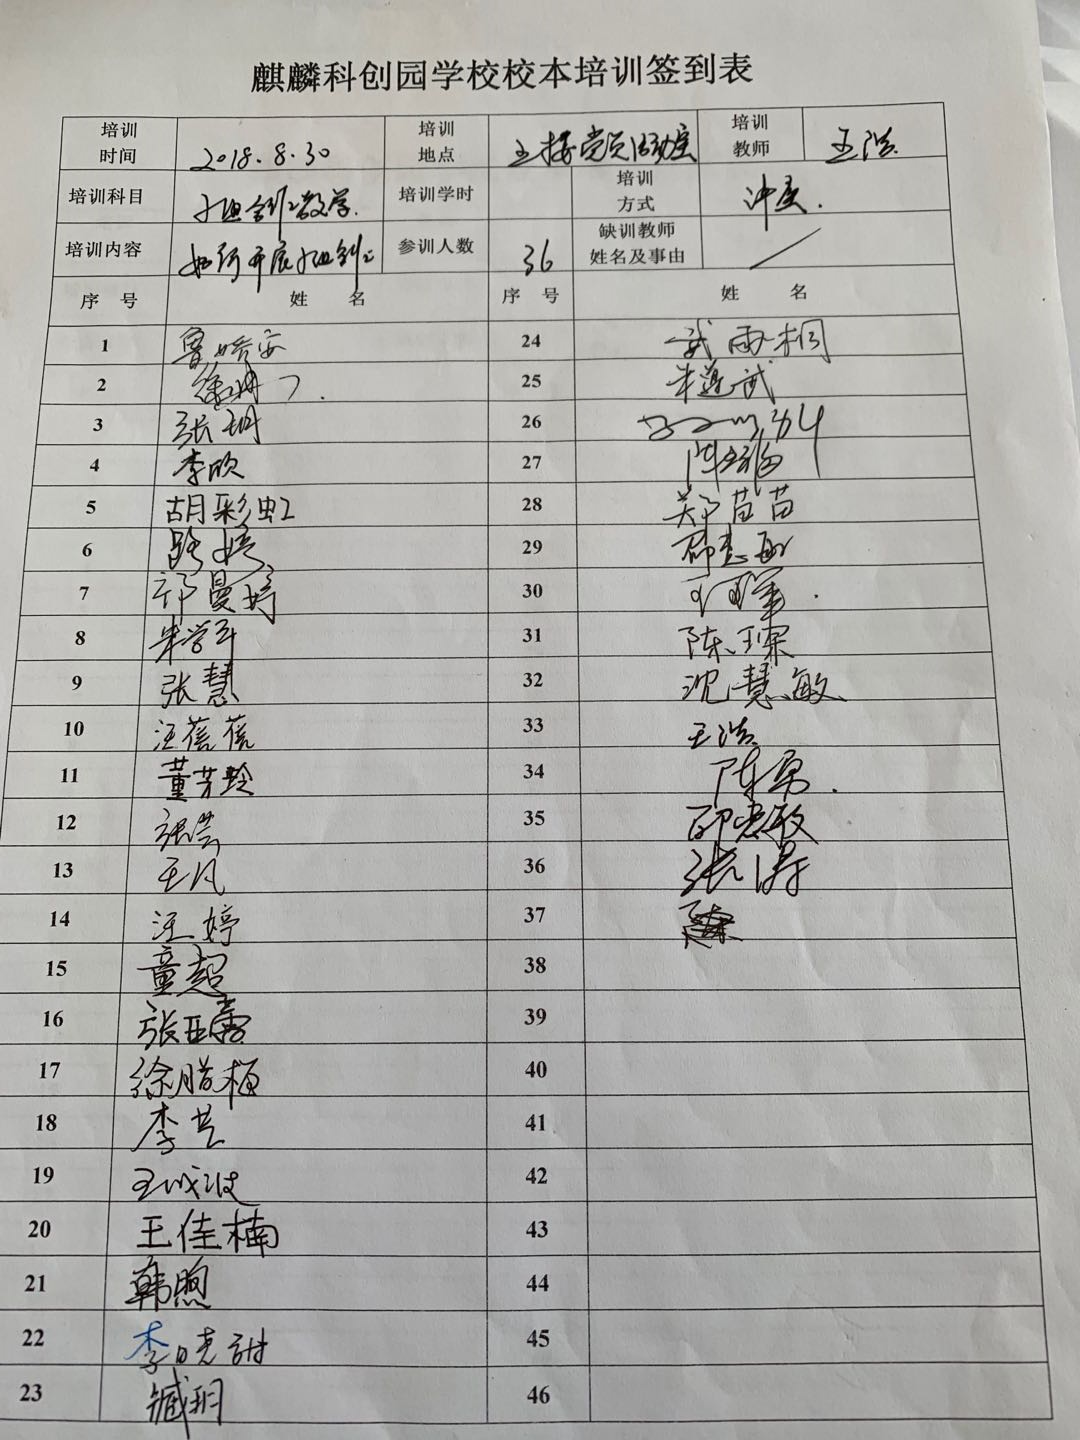 麒麟科创园学校校本培训签到表
培训时间 2018.8.30 培训地点 党员活动室 培训教师 王浩
培训科目 教学. 培训学时 培训方式
培训内容 如何开展 参训人数 36 缺训教师姓名及事由
序 号 姓 名 序 号 姓 名
1 24 武雨桐
2 25 朱莲武
3 张玥 26
4 李欣 27
5 胡彩虹 28 郑苗苗
6 路婷 29
7 郭曼婷 30
8 朱学军 31 陈琛
9 张慧 32 沈慧敏
10 汪蓓蓓 33 王浩
11 董芳玲 34 陈勇.
12 张芸 35 邵忠敏
13 王凡 36 张涛
14 汪婷 37
15 童超 38
16 张亚 39
17 徐腊梅 40
18 李芸 41
19 王成波 42
20 王佳楠 43
21 韩煦 44
22 李晓甜 45
23 臧玥 46